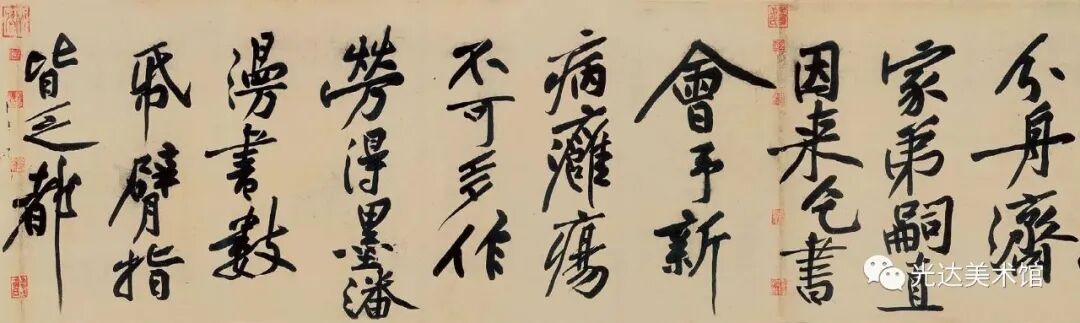 分舟濟
家弟嗣直
因来乞書
會予新
病癰瘍
不可多作
勞得墨瀋
漫書數
帋臂指
皆乏都
光达美术馆